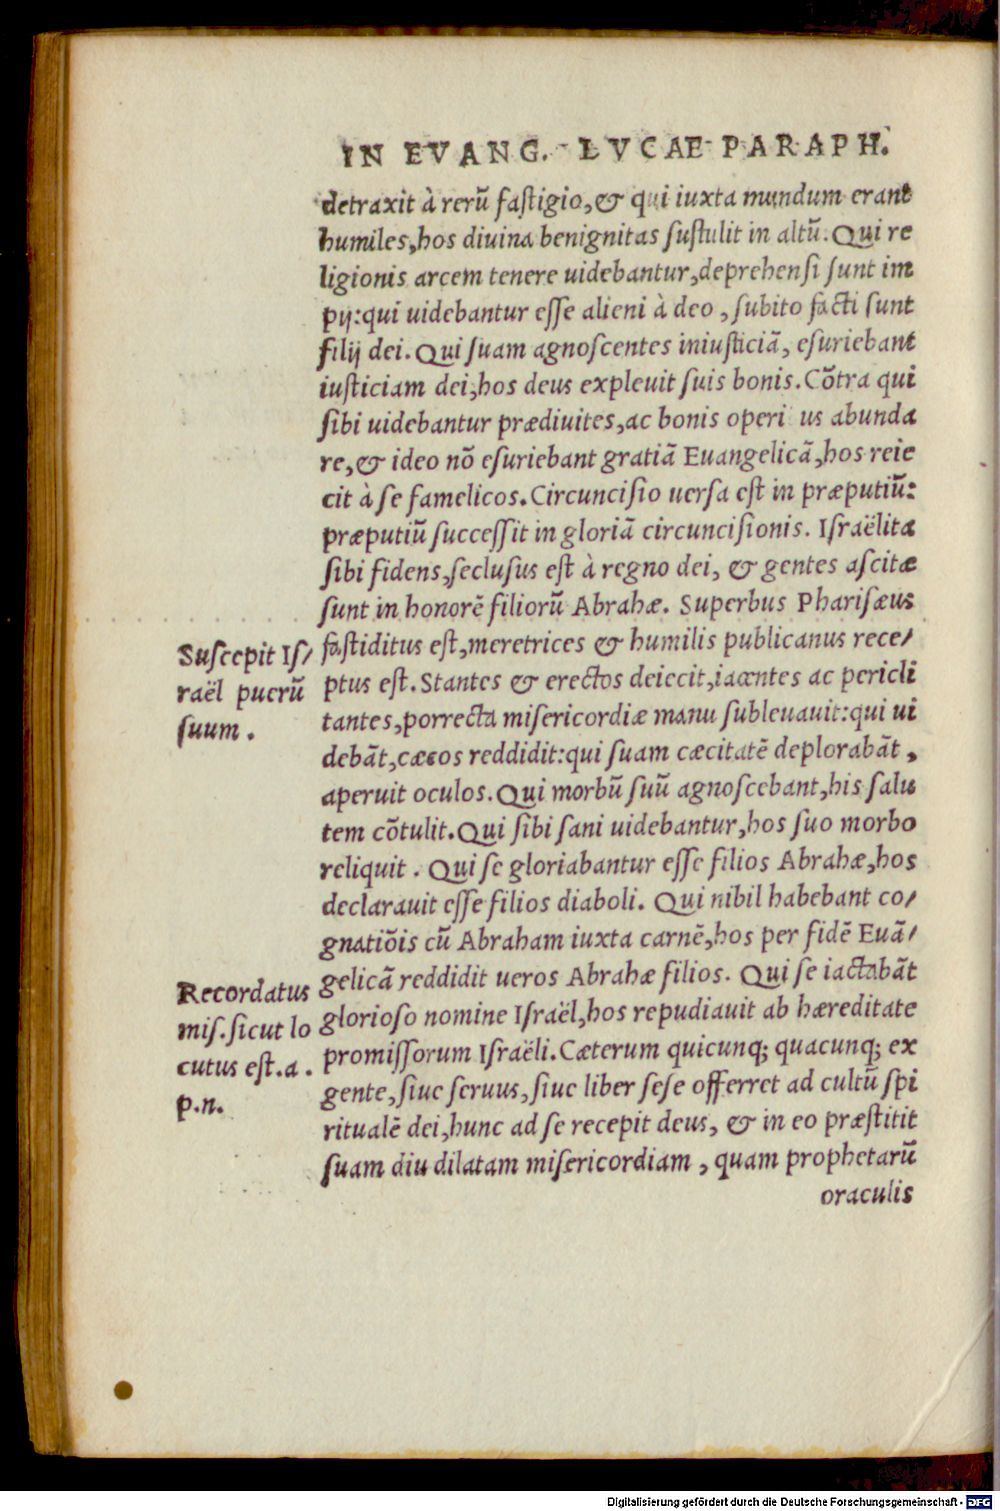 IN EVANG. LVCAE PARAPH.
detraxit à rerũ faſtigio, & qui iuxta mundum erant
humiles, hos diuina benignitas ſuſtulit in altũ. Qui re
ligionis arcem tenere uidebantur, deprehenſi ſunt im
pij: qui uidebantur eſſe alieni à deo, ſubito facti ſunt
filij dei. Qui ſuam agnoſcentes iniuſticiã, eſuriebant
iuſticiam dei, hos deus expleuit ſuis bonis. Cõtra qui
ſibi uidebantur prædiuites, ac bonis operi us abunda
re, & ideo nõ eſuriebant gratiã Euangelicã, hos reie
cit à ſe famelicos. Circunciſio uerſa eſt in præputiũ:
præputiũ ſucceſſit in gloriã circunciſionis. Iſraëlita
ſibi fidens, ſecluſus eſt à regno dei, & gentes aſcitæ
ſunt in honorẽ filiorũ Abrahæ. Superbus Phariſæus
faſtiditus eſt, meretrices & humilis publicanus rece/
ptus eſt. Stantes & erectos deiecit, iacentes ac pericli
tantes, porrecta miſericordiæ manu ſubleuauit: qui ui
debãt, cæcos reddidit: qui ſuam cæcitatẽ deplorabãt,
aperuit oculos. Qui morbũ ſuũ agnoſcebant, his ſalu
tem cõtulit. Qui ſibi ſani uidebantur, hos ſuo morbo
reliquit. Qui ſe gloriabantur eſſe filios Abrahæ, hos
declarauit eſſe filios diaboli. Qui nihil habebant co/
gnatiõis cũ Abraham iuxta carnẽ, hos per fidẽ Euã/
gelicã reddidit ueros Abrahæ filios. Qui ſe iactabãt
glorioſo nomine Iſraël, hos repudiauit ab hæreditate
promiſſorum Iſraëli. Cæterum quicunq; quacunq; ex
gente, ſiue ſeruus, ſiue liber ſeſe offerret ad cultũ ſpi
ritualẽ dei, hunc ad ſe recepit deus, & in eo præſtitit
ſuam diu dilatam miſericordiam, quam prophetarũ
oraculis
Suſcepit Iſ/
raël puerũ
ſuum.
Recordatus
miſ. ſicut lo
cutus eſt. a.
p. n.
Digitalisierung gefördert durch die Deutsche Forschungsgemeinschaft - DFG